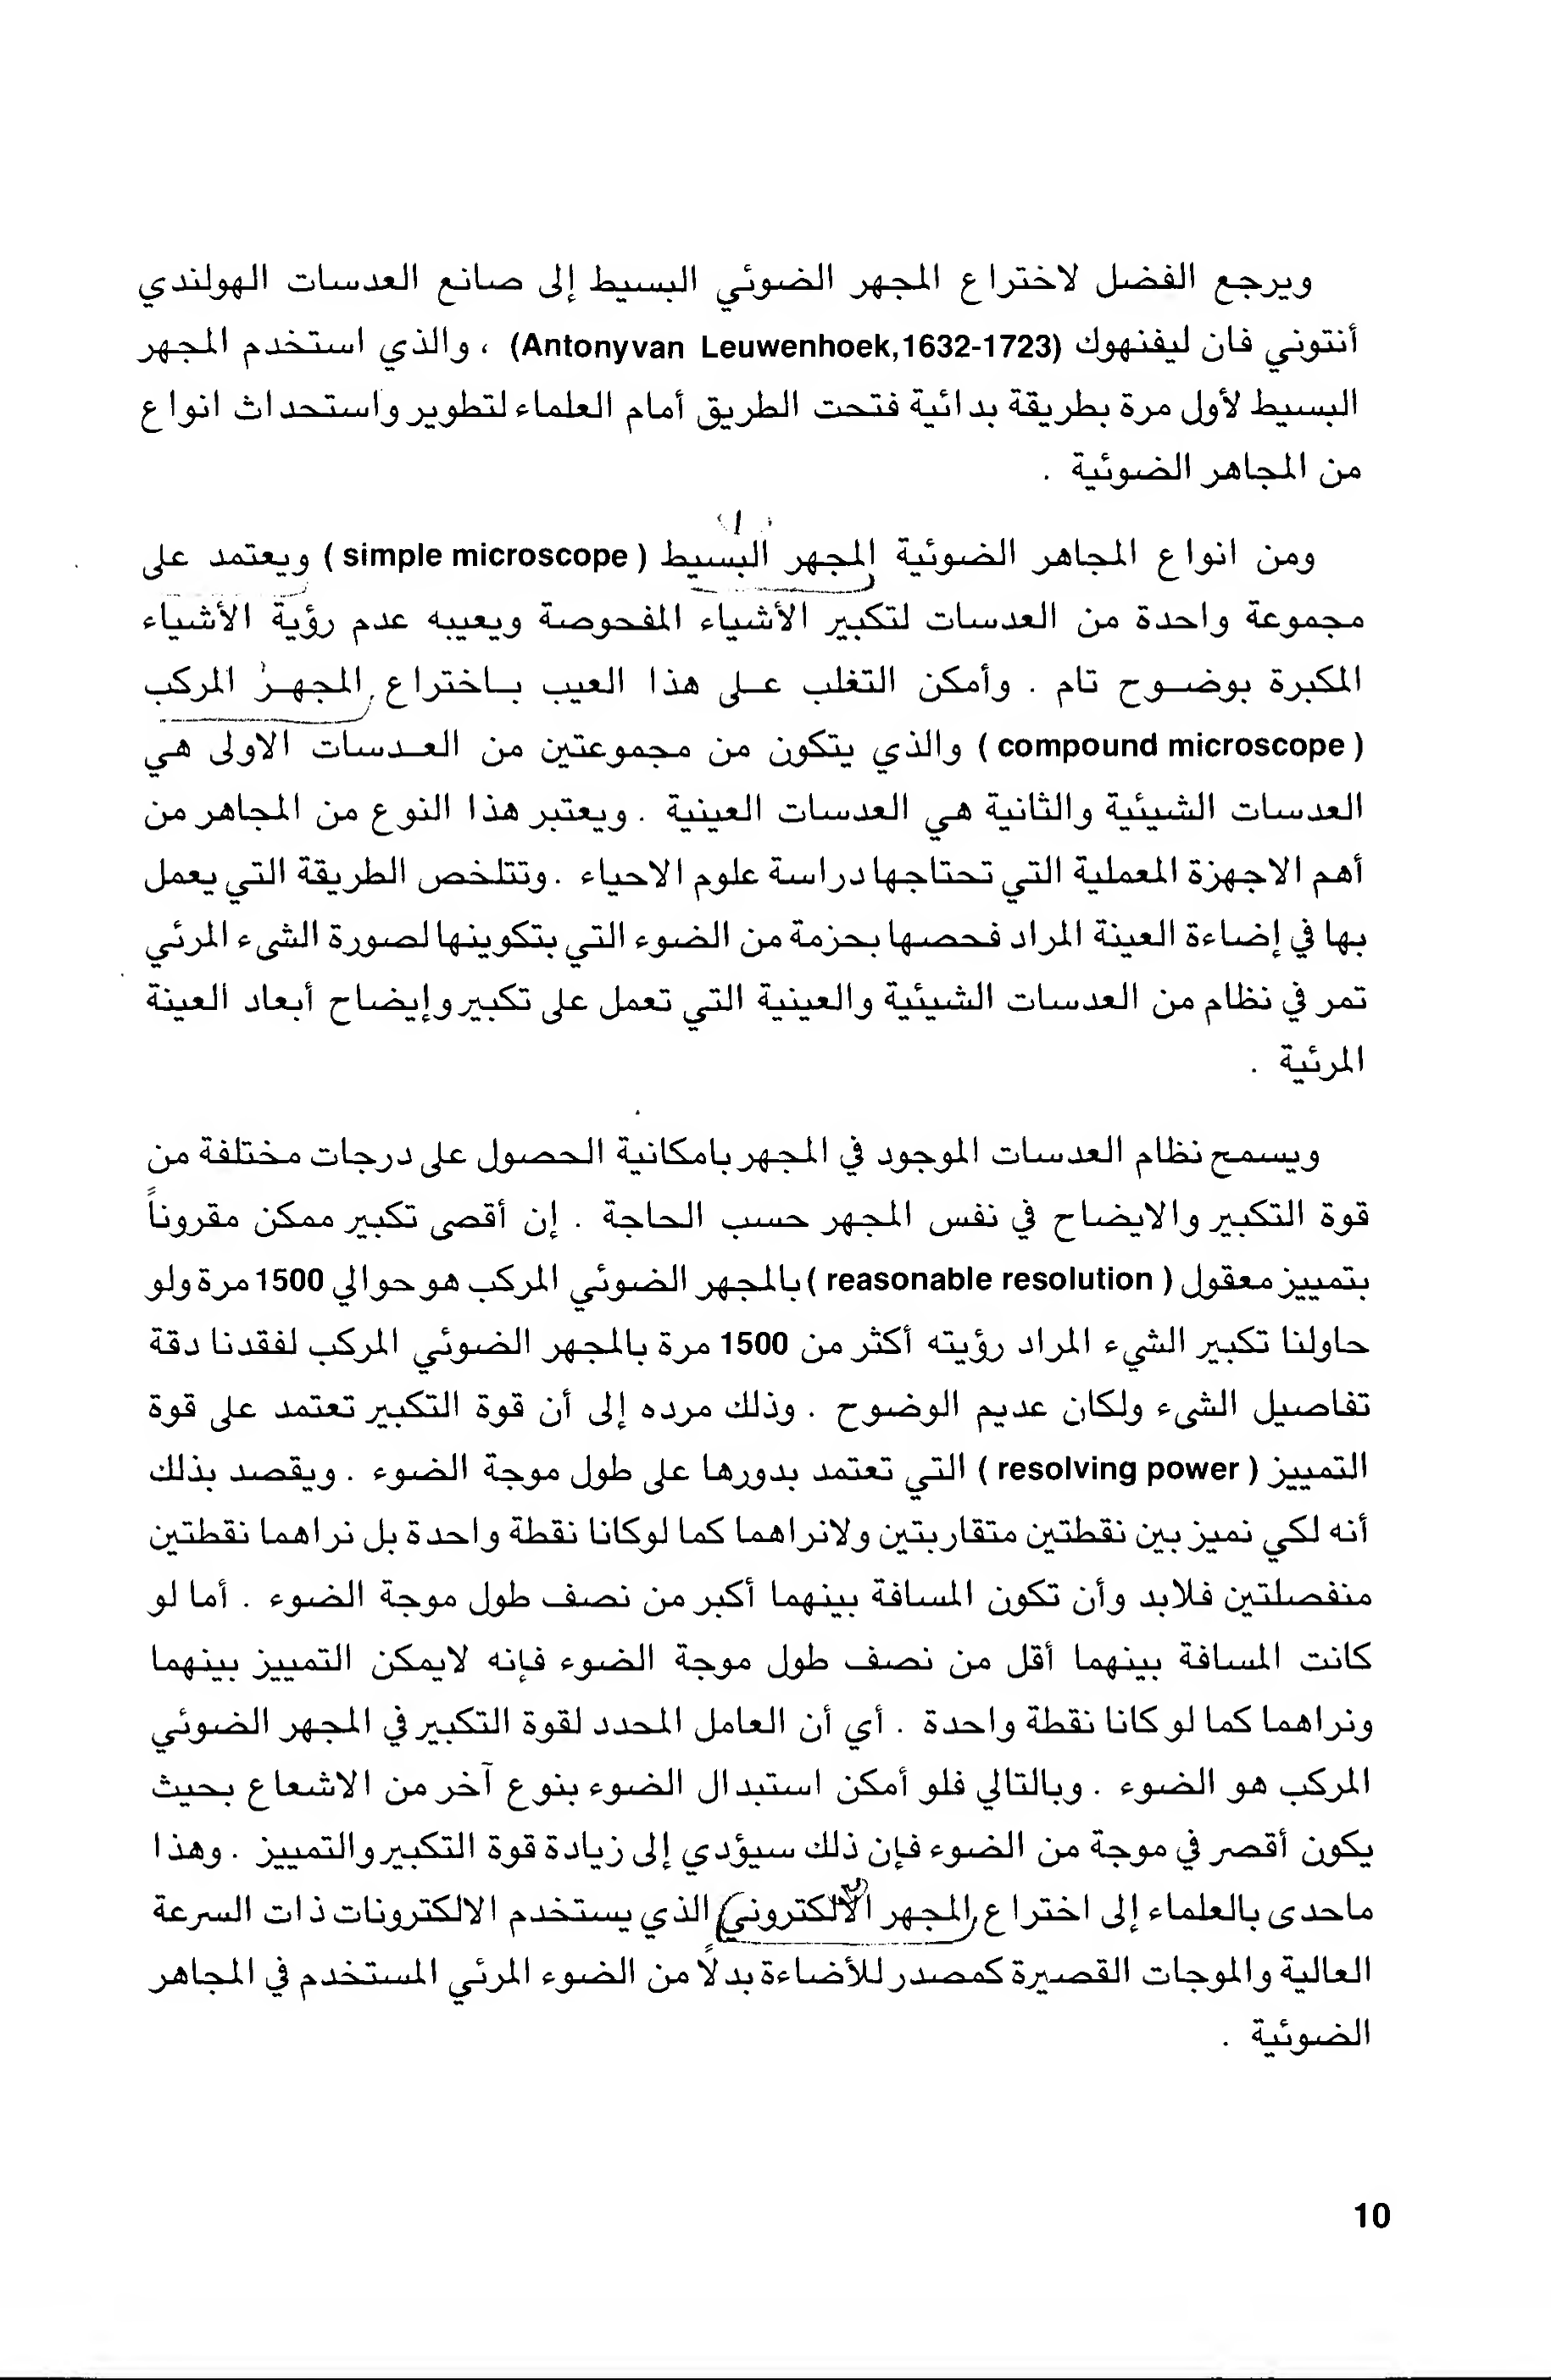 ويرجع الفضل لاختراع المجهر الضوئي البسيط إلى صانع العدسات الهولندي
أنتوني فان ليفنهوك (Antonyvan Leuwenhoek,1632-1723) ، والذي استخدم المجهر
البسيط لأول مرة بطريقة بدائية فتحت الطريق أمام العلماء لتطوير واستحداث انواع
من المجاهر الضوئية .
ومن انواع المجاهر الضوئية المجهر البسيط ( simple microscope ) ويعتمد على
مجموعة واحدة من العدسات لتكبير الأشياء المفحوصة ويعيبه عدم رؤية الأشياء
المكبرة بوضوح تام . وأمكن التغلب على هذا العيب باختراع المجهر المركب
( compound microscope ) والذي يتكون من مجموعتين من العدسات الاولى هي
العدسات الشيئية والثانية هي العدسات العينية . ويعتبر هذا النوع من المجاهر من
أهم الاجهزة المعملية التي تحتاجها دراسة علوم الاحياء . وتتلخص الطريقة التي يعمل
بها في إضاءة العينة المراد فحصها بحزمة من الضوء التي بتكوينها لصورة الشىء المرئي
تمر في نظام من العدسات الشيئية والعينية التي تعمل على تكبير وإيضاح أبعاد العينة
المرئية .
ويسمح نظام العدسات الموجود في المجهر بامكانية الحصول على درجات مختلفة من
قوة التكبير والايضاح في نفس المجهر حسب الحاجة . إن أقصى تكبير ممكن مقروناً
بتمييز معقول ( reasonable resolution ) بالمجهر الضوئي المركب هو حوالي 1500 مرة ولو
حاولنا تكبير الشيء المراد رؤيته أكثر من 1500 مرة بالمجهر الضوئي المركب لفقدنا دقة
تفاصيل الشىء ولكان عديم الوضوح . وذلك مرده إلى أن قوة التكبير تعتمد على قوة
التمييز ( resolving power ) التي تعتمد بدورها على طول موجة الضوء . ويقصد بذلك
أنه لكي نميز بين نقطتين متقاربتين ولانراهما كما لوكانا نقطة واحدة بل نراهما نقطتين
منفصلتين فلابد وأن تكون المسافة بينهما أكبر من نصف طول موجة الضوء . أما لو
كانت المسافة بينهما أقل من نصف طول موجة الضوء فإنه لايمكن التمييز بينهما
ونراهما كما لو كانا نقطة واحدة . أي أن العامل المحدد لقوة التكبير في المجهر الضوئي
المركب هو الضوء . وبالتالي فلو أمكن استبدال الضوء بنوع آخر من الاشعاع بحيث
يكون أقصر في موجة من الضوء فإن ذلك سيؤدي إلى زيادة قوة التكبير والتمييز . وهذا
ماحدى بالعلماء إلى اختراع المجهر الالكتروني الذي يستخدم الالكترونات ذات السرعة
العالية والموجات القصيرة كمصدر للأضاءة بدلاً من الضوء المرئي المستخدم في المجاهر
الضوئية .
10